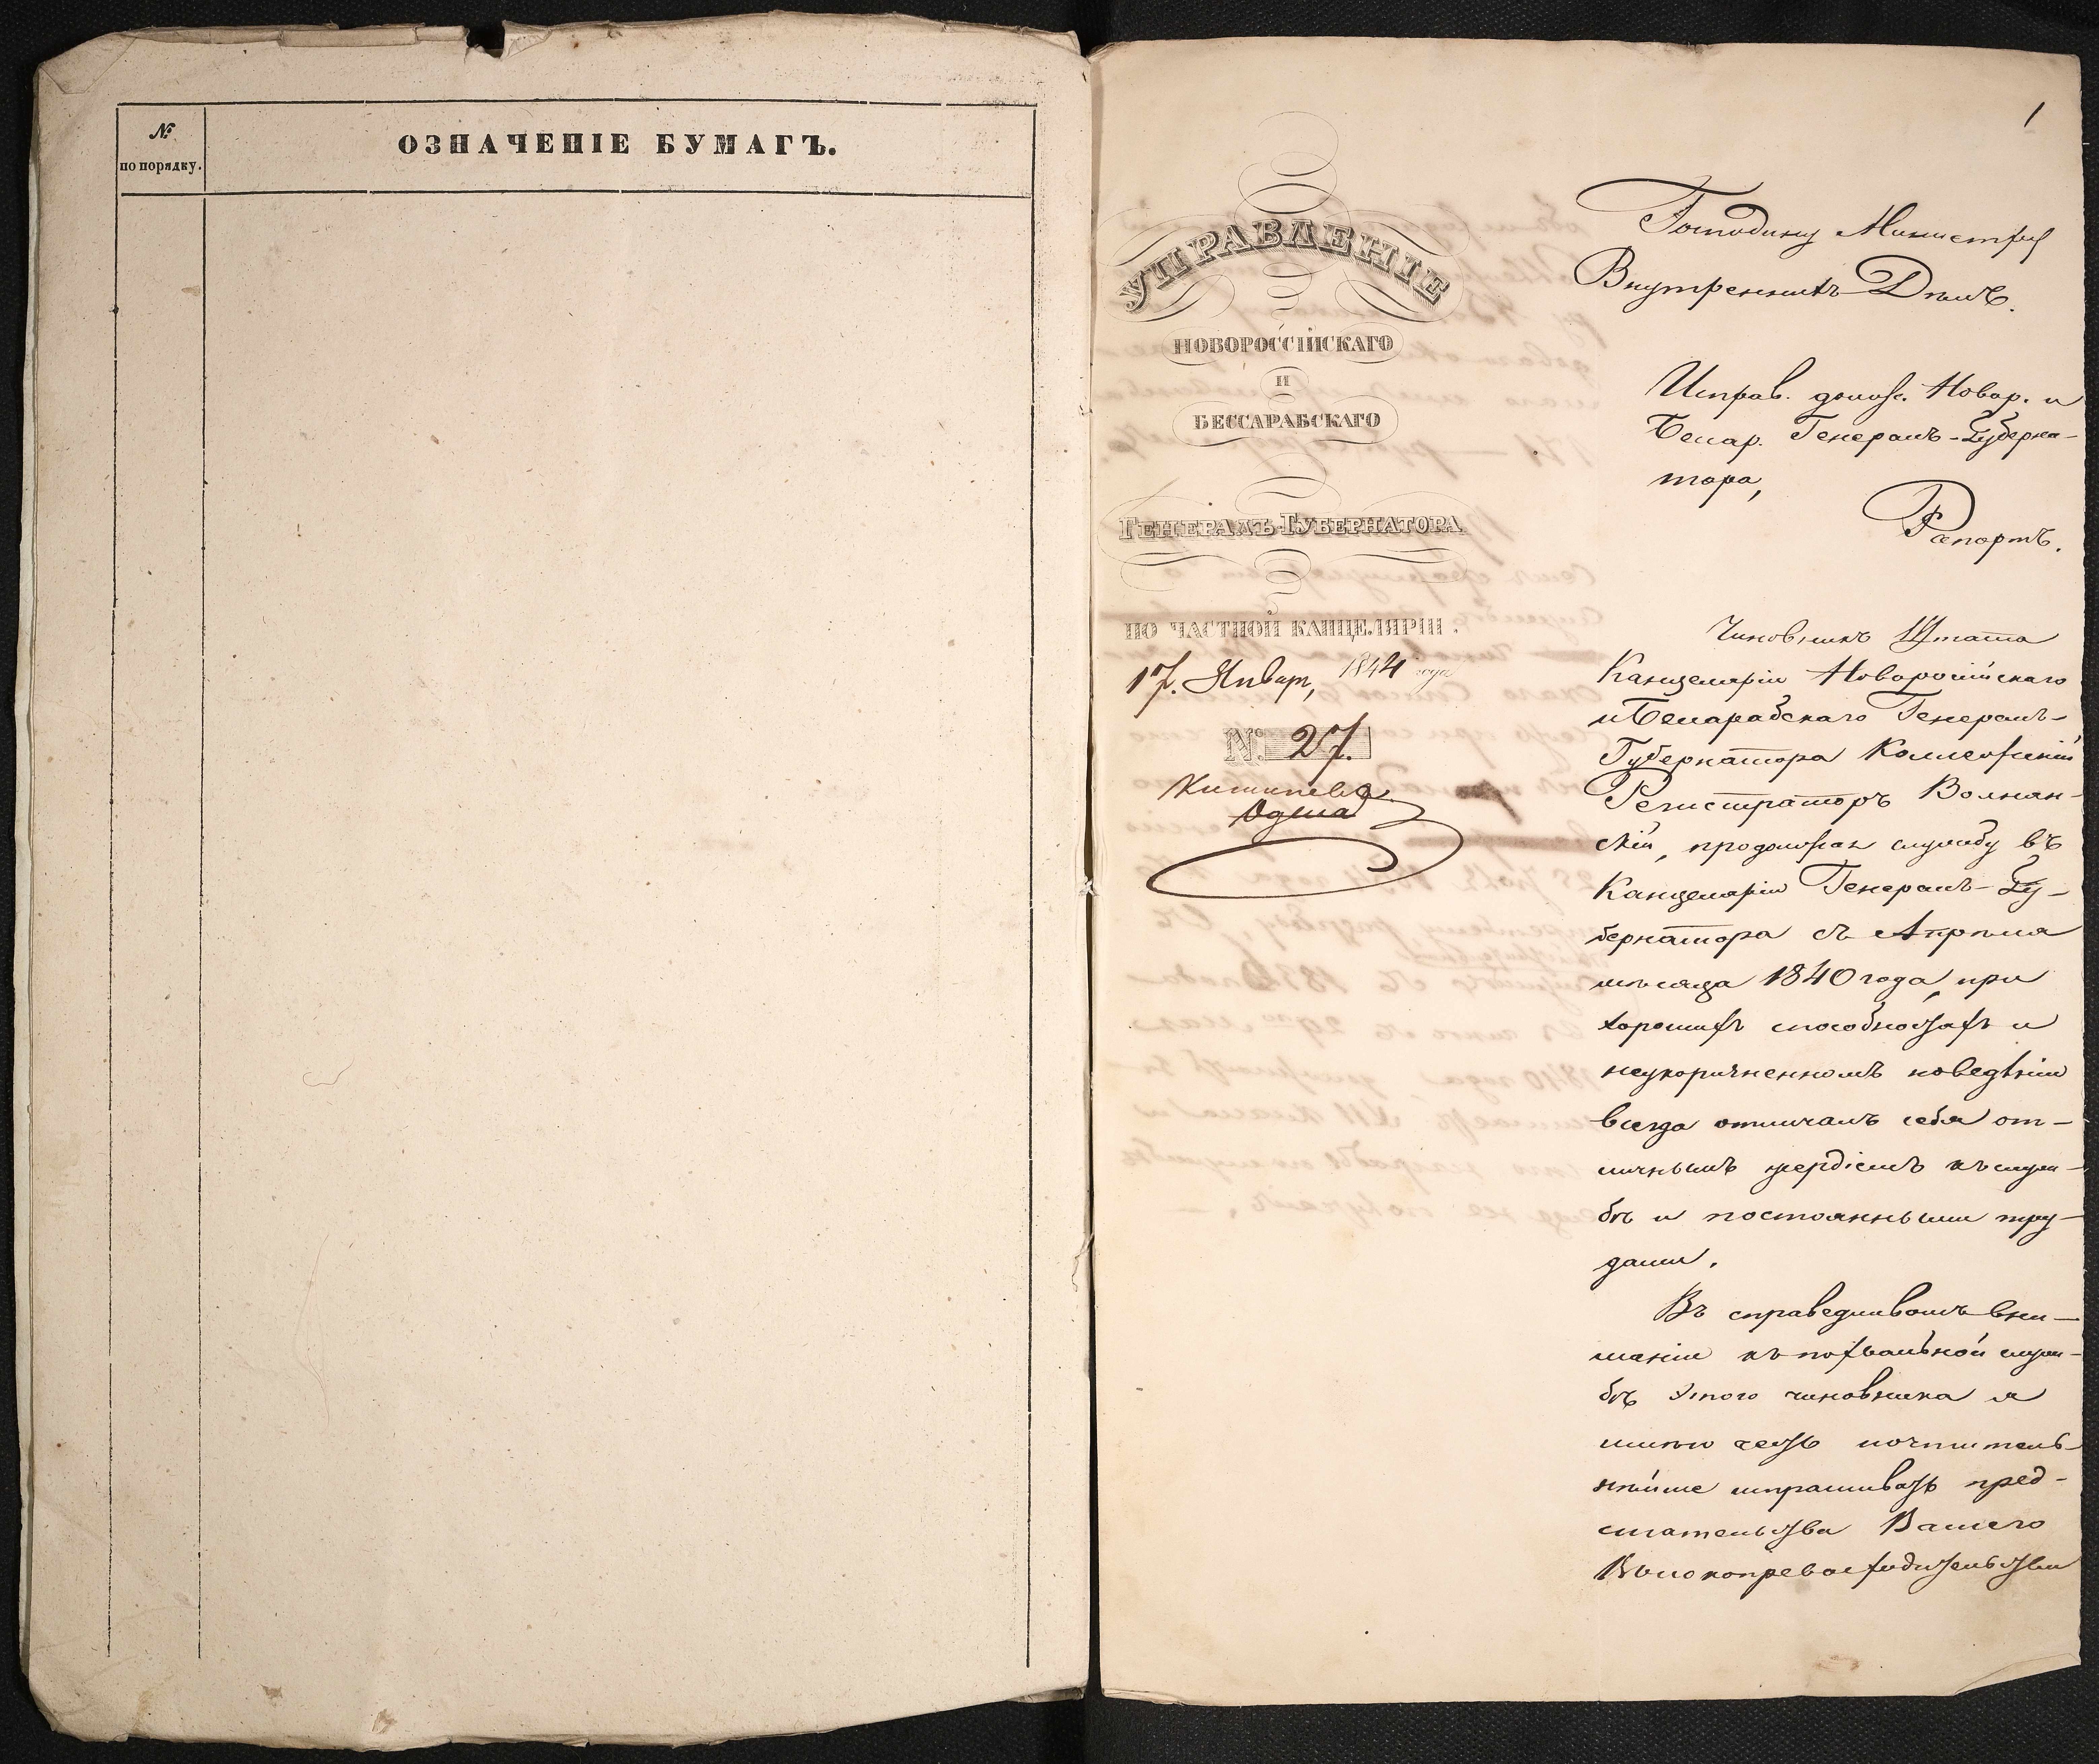 №
по порядку.
ОЗНАЧЕНІЕ БУМАГЪ.
1
УПРАВЛЕНІЕ
НОВОРОССІЙСКАГО
И
БЕССАРАБСКАГО
ГЕНЕРАЛЪ-ГУБЕРНАТОРА
ПО ЧАСТНОЙ КАНЦЕЛЯРІИ.
17. Январ, 1844 года
№ 27.
Кишинев
Одесса
Господину Министру
Внутреннихъ Дѣлъ.
Исправ. должн. Новор. и
Бессар. Генералъ-Губерна-
тора,
Рапортъ.
Чиновникъ Штата
Канцеляріи Новоросійскаго
и Бессарабскаго Генералъ-
Губернатора Коллежскій
Регистраторъ Волчан-
скій, продолжая службу въ
Канцеляріи Генералъ-Гу-
бернатора съ Апрѣля
мѣсяца 1840 года, при
хорошихъ способностяхъ и
неукоризненномъ поведѣніи
всегда отличалъ себя от-
личнымъ усердіемъ къ служ-
бѣ и постоянными тру-
дами.
Въ справедливомъ вни-
маніи къ похвальной служ-
бѣ этого чиновника я
имѣю честь почтитель-
нѣйше испрашивать пред-
стательства Вашего
Высокопревосходительства